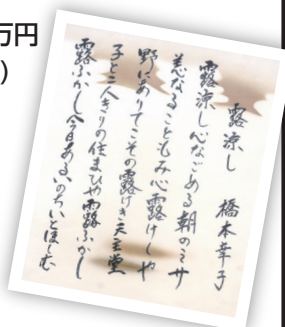 万円
)
露涼し　橋本幸子
露涼し心なごめる朝のミサ
恙なきこともみ心露けしや
野にありてこその露けき天主堂
子と二人きりの住まひや露ふかし
露ふかし今日あるいのちいとほしむ